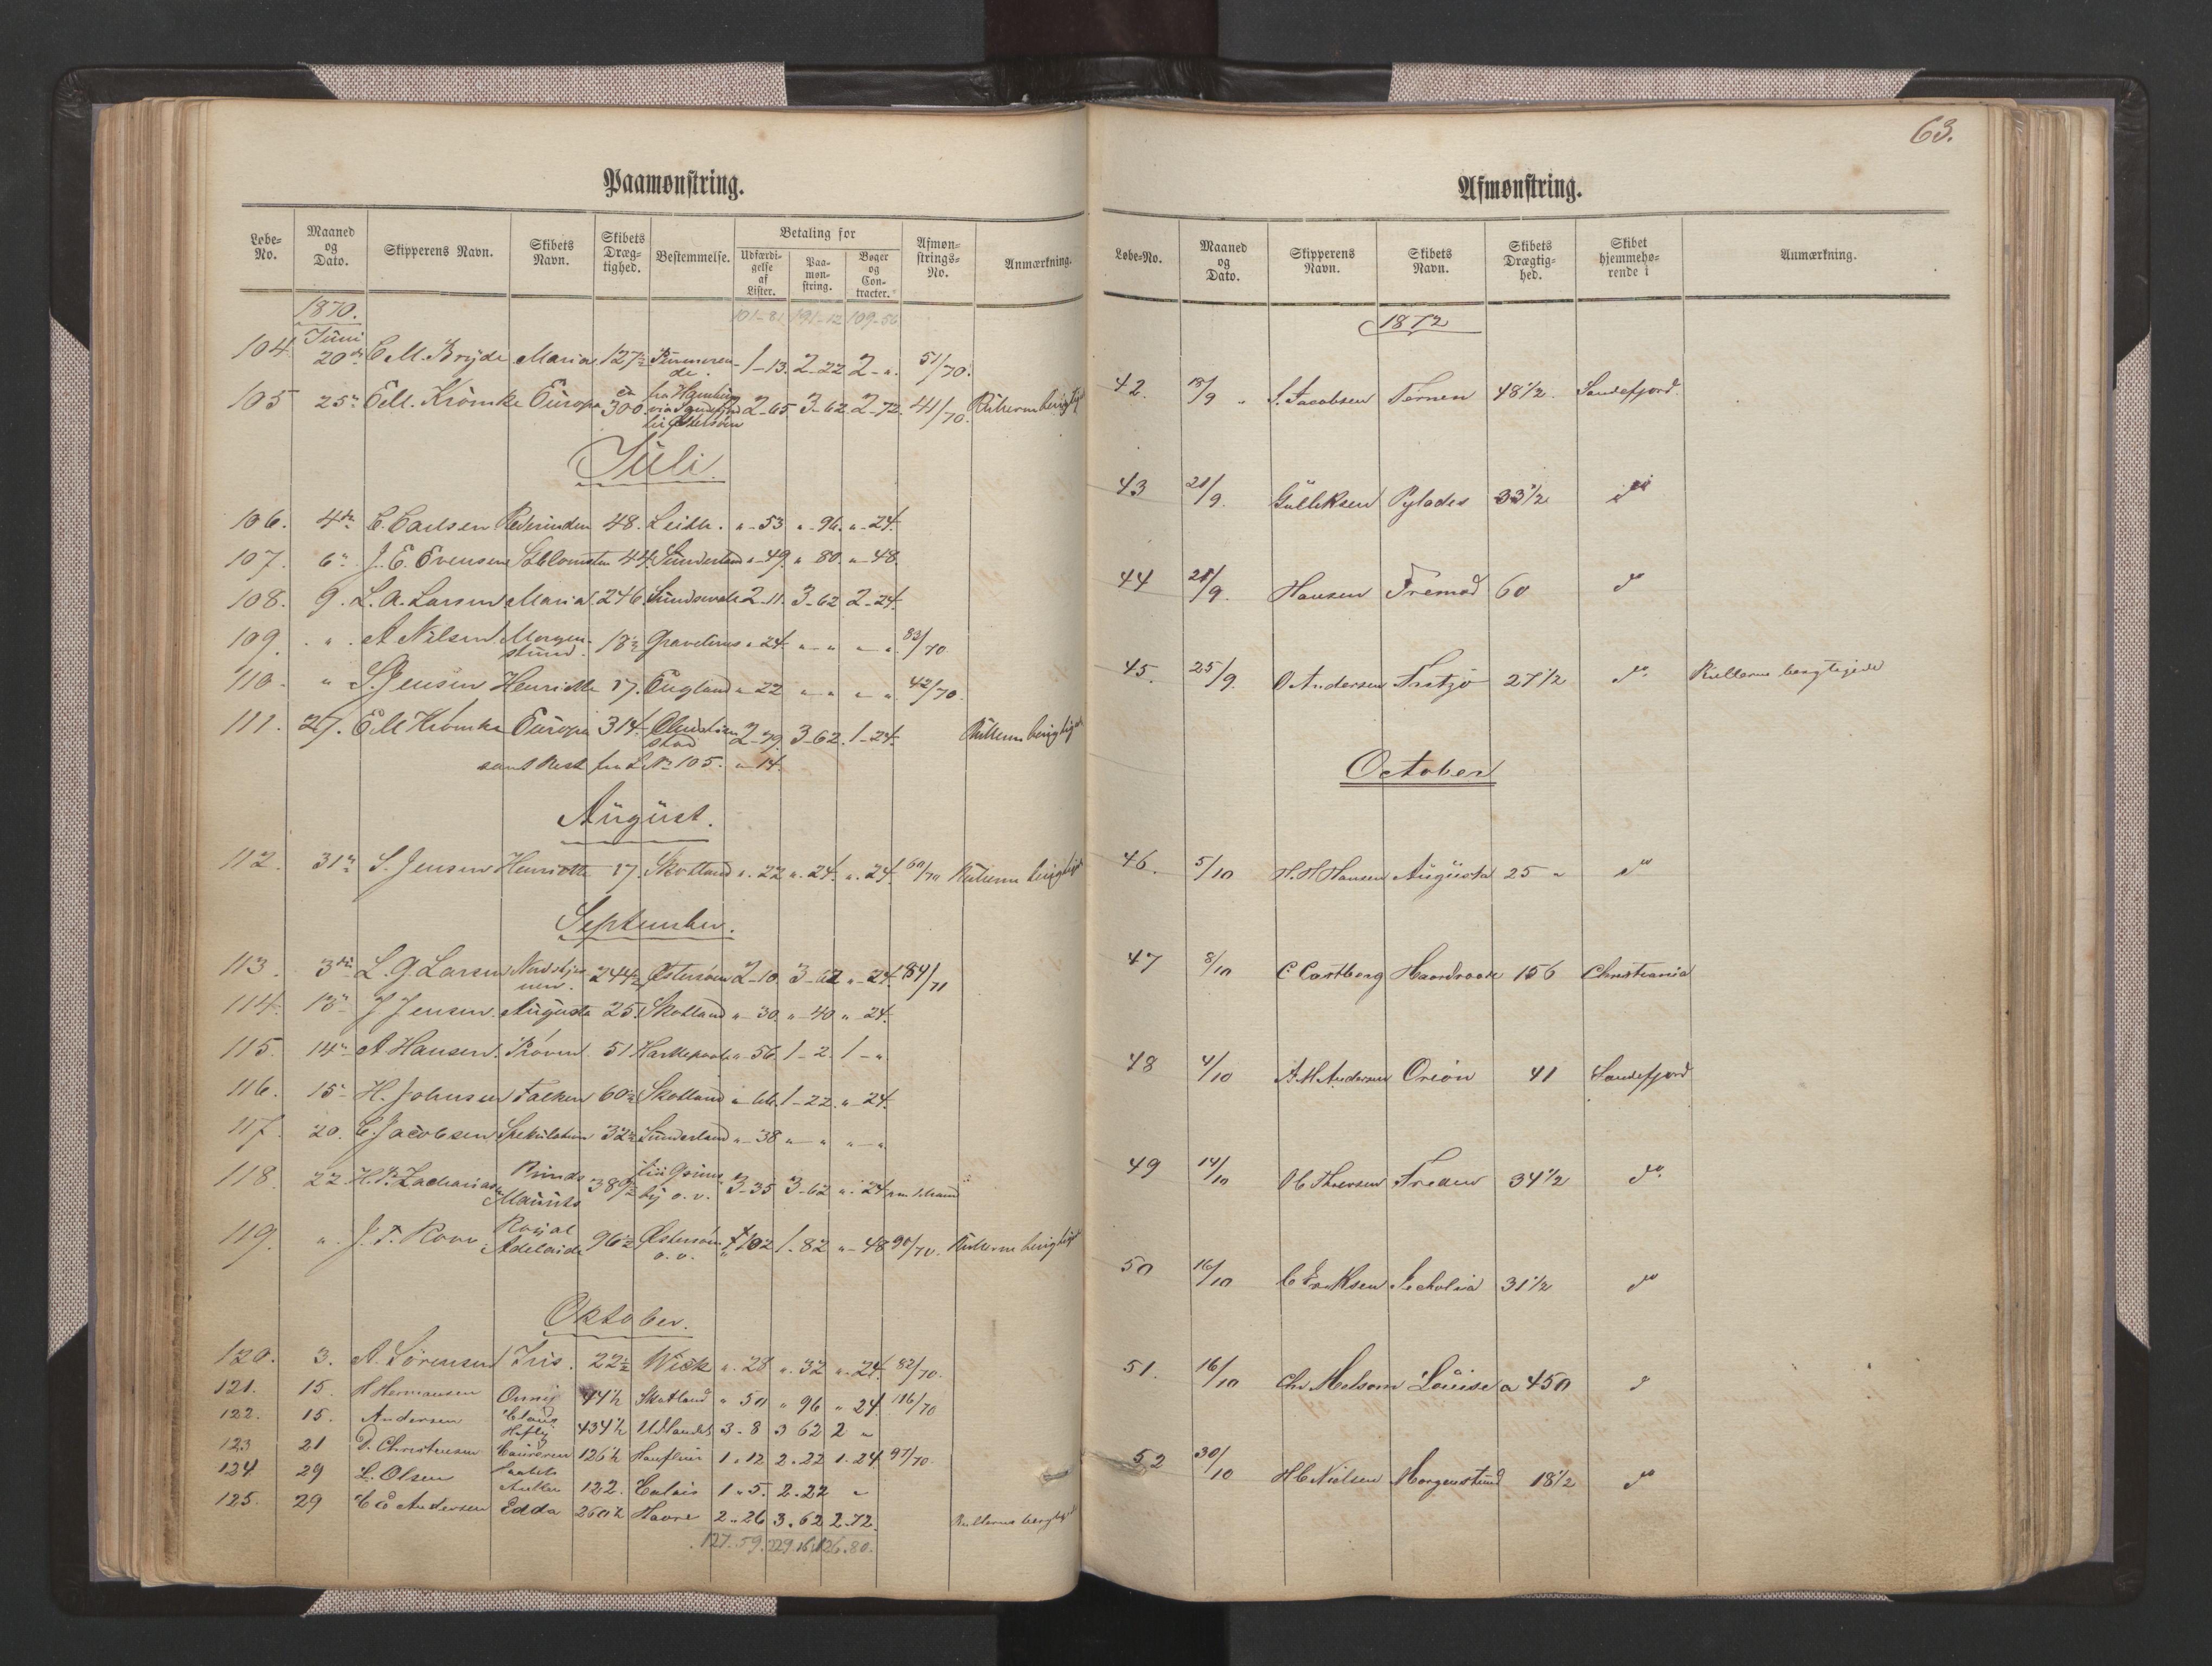 Paamønstring.
Løbe-No. Maaned og Dato. Skipperens Navn. Skibets Navn. Skibets Drægtighed. Bestemmelse. Betaling for Udfærdigelse af Lister. Paamønstring. Bøger og Contracter. Afmønstrings-No. Anmærkning.
1870. 101-81 191-12 109-56
Juni
104. 20de C. M. Bryde Maria 127½ 1-13. 2-22 2-". 51/70.
105 25" E. M. Krömke Europa ca 300 fra Hamburg via Sandefjord til Østersøen 2-65 3-62 2-72. 41/70.
Juli.
106. 4de C. Carlsen Rederinden 48. Leith. "-53 "-96. "-24.
107. 6" J. E. Evensen 44. Sunderland "-49. " 80. "-48.
108. 9. L. A. Larsen Maria 246. Sundsvall 2-11. 3-62 2-24.
109. " A Nilsen Morgenstund. 18½ Gravelines "-24. "-" "-" 83/70
110. " S. Jensen Henriette 17. England "-22 "-" "-" 42/70.
111. 27. E M Krömke Europa 314. Christianstad 2-79. 3-62. 1-24.
samt Rest fra L. No 105. "-14.
August.
112. 31" S. Jensen Henriette 17. Skotland ". 22 ". 24. ". 24. 60/70
September.
113. 3die L. G. Larsen 244½ Østersøen 2-10. 3-62 "-24. 84/71
114. 13" J Jensen. Augusta 25. Skotland "-30. "-40 "-24.
115. 14" A Hansen. 51 Hartlepool "-56. 1-2. 1-"
116. 15" H. Johnsen Falken 60½ Skotland "-66. 1-22. "-24.
117. 20. C. Jacobsen Spekulation 32½ Sunderland "-38 "-" "-"
118. 22. H. P. Zachariasen Prinds Mauritz 38½ til Grimsby o. v. 3-35 3-62 ". 24
119. ". J. T. Rove Royal Adelaide 96½ Østersøen o. v. 102 1-82 "-48 90/70.
Oktober.
120. 3. A. Sörensen Iris. 22½ Wick ". 28 ". 32 ". 24. 82/70.
121. 15. H Hermansen 44½ Skotland " 50 " 96 " 24. 116/70
122. 15. Andersen 434½ Udlandet 3-8 3 62 2 "
123 21 D. Christensen 126½ Honfleur 1-12 2-22 1-24 97/70.
124 29 L. Olsen Haabets Anker 122. Calais 1-5. 2-22 "
125. 29 C C Andersen Edda 260½ Havre 2-26 3-62 2-72.
127-59. 229.16 126.80.
63.
Afmønstring.
Løbe-No. Maaned og Dato. Skipperens Navn. Skibets Navn. Skibets Drægtighed. Skibet hjemmehørende i Anmærkning.
1872
42. 18/9 S. Jacobsen Ternen 48½. Sandefjord
43 21/9. Gulliksen Pylades 33½ do
44 21/9. Hansen Fremad 60 do
45. 25/9. O Andersen 27½ do
October
46. 5/10 H. H Hansen Augusta 25 " do
47 8/10 C Castberg Haandraade 156 Christiania
48 4/10 A M Andersen Orion 41 Sandefjord
49 14/10 Freden 34½ do
50 16/10 C Eriksen 31½ do
51. 16/10 Chr Melsom Louise a 450 do
52 30/10 H C Nielsen Morgenstund 18½ do